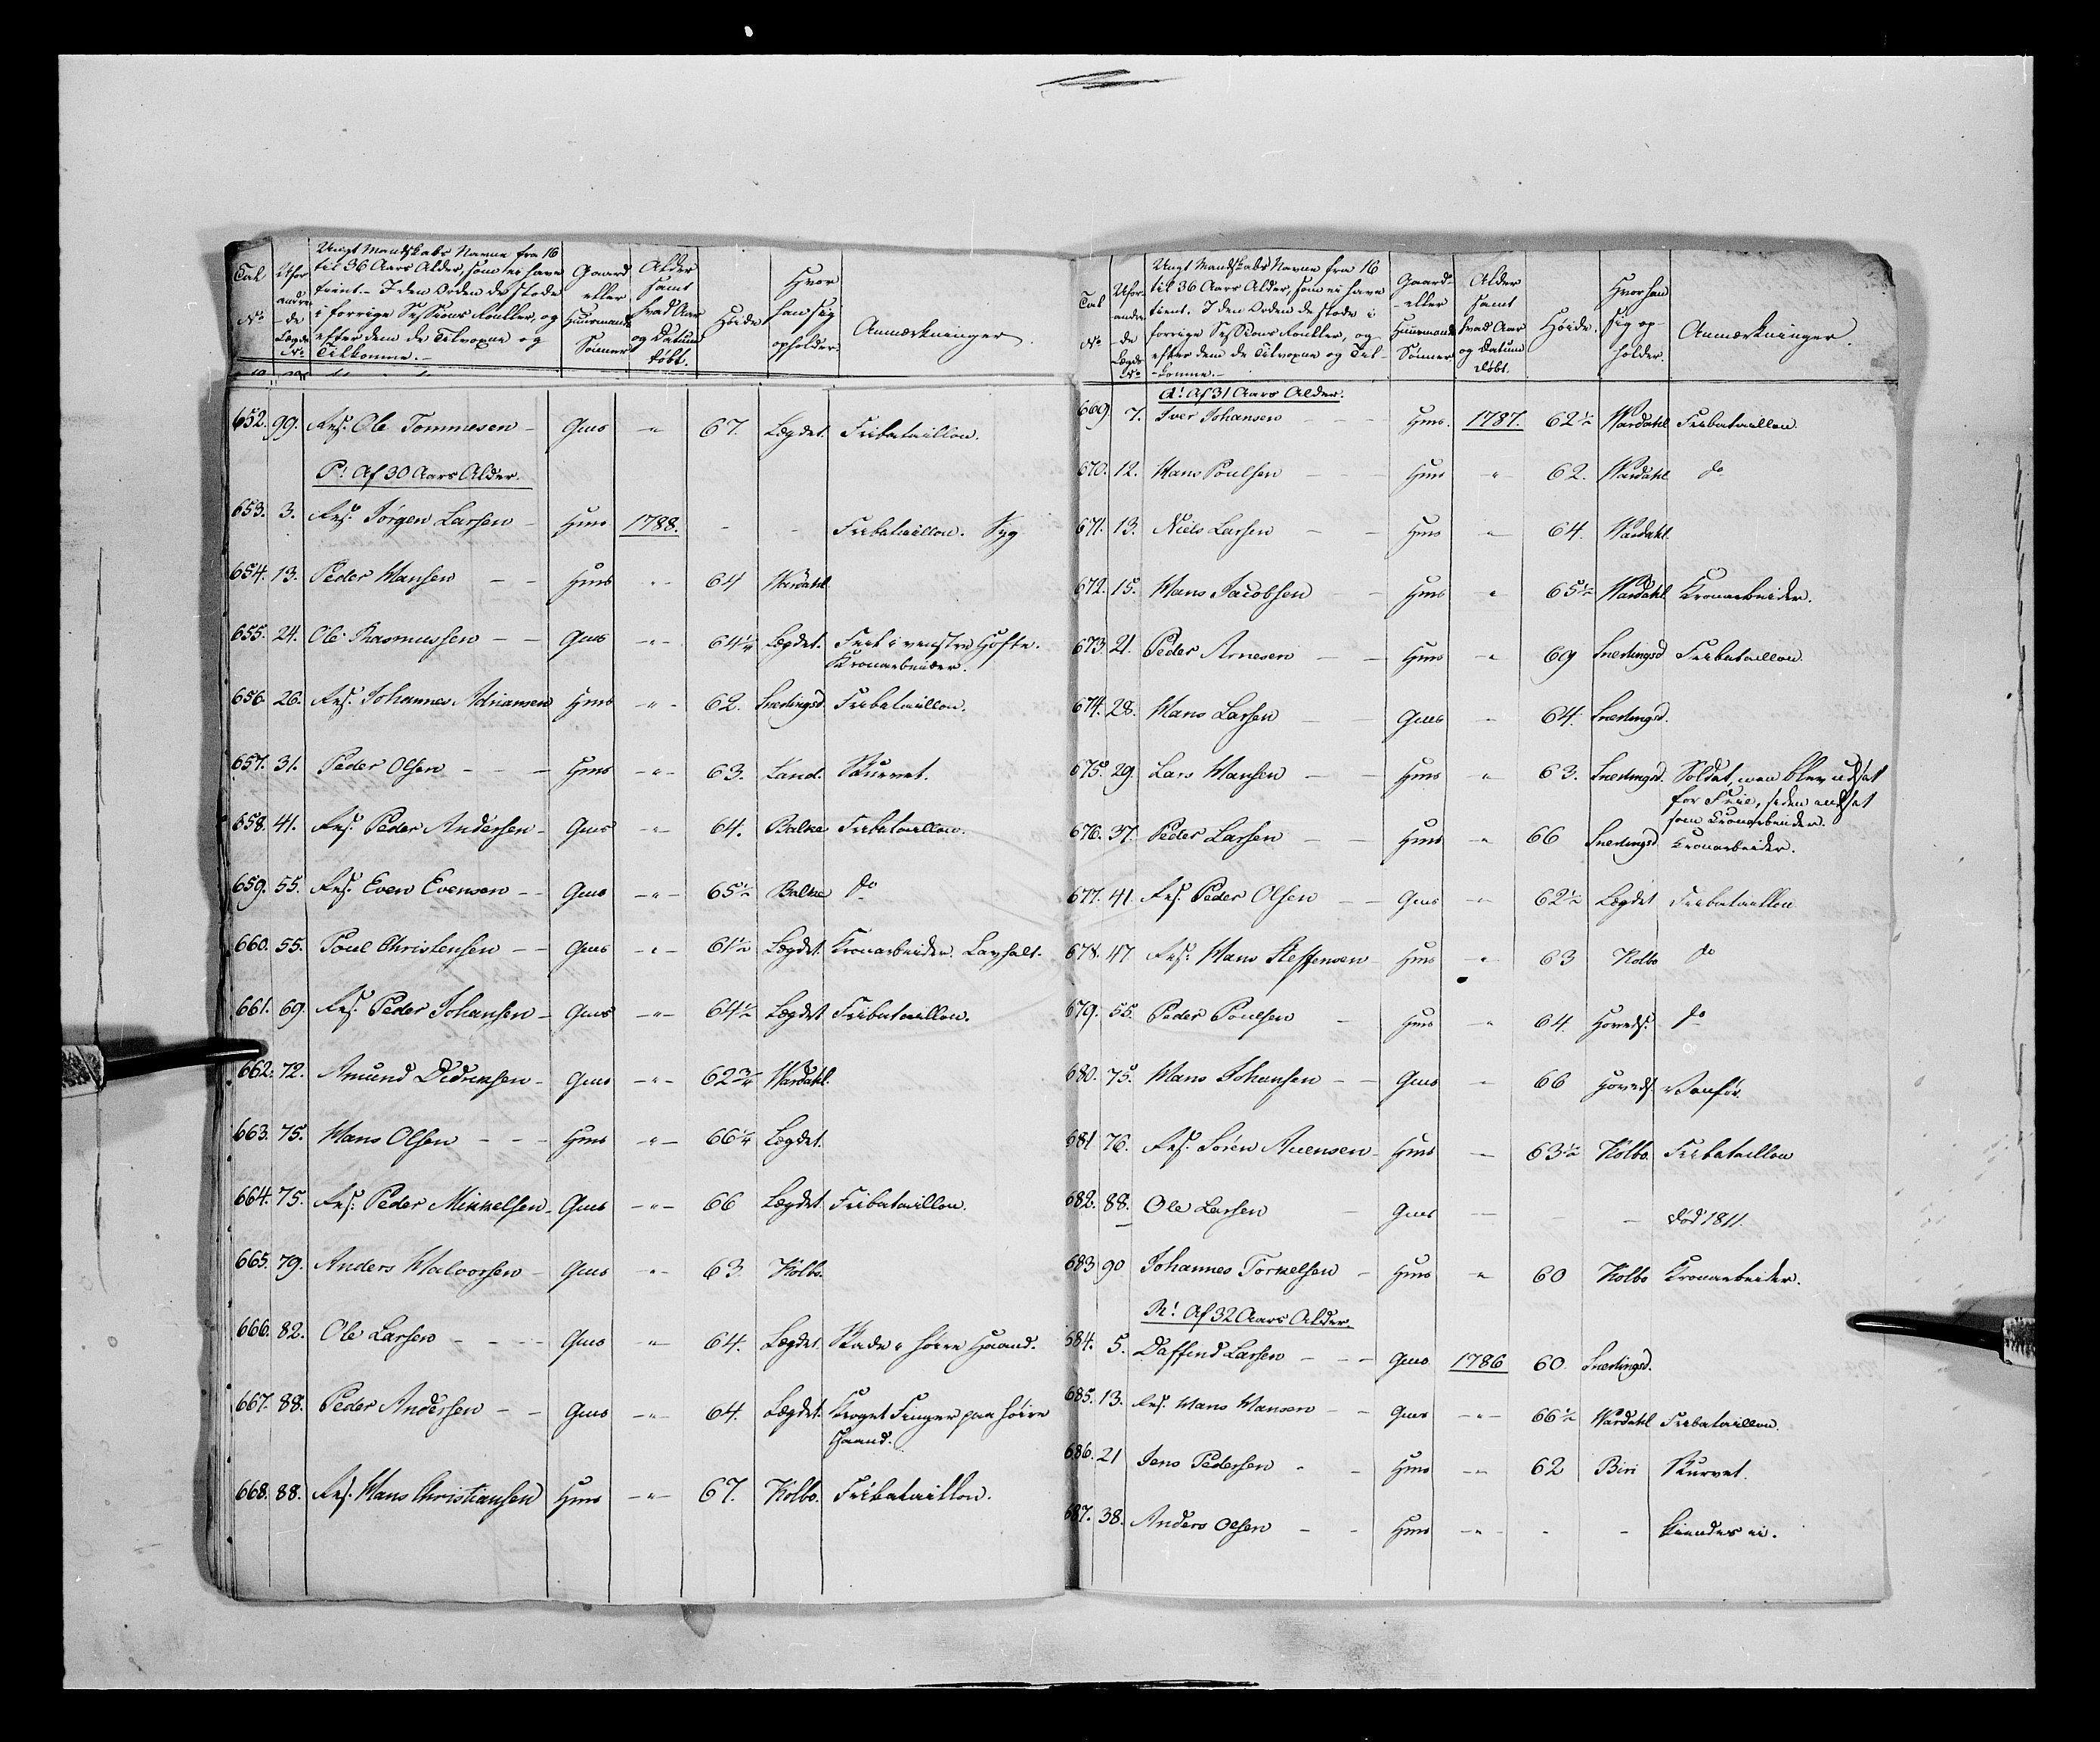 Tal No
Uforandrede Lægds No
Ungt Mandskabs Navne fra 16
til 36 Aars Alder, som ei have
tient. I den Orden de stode
i forrige Sessions Rouller, og
efter dem de Tilvoxne og
Tilkomne.
Gaard eller Huusmands Sønner
Alder samt hvad Aar og Datum døbt.
Høide
Hvor han sig opholder.
Anmærkninger.
652. 99. Ans. Ole Tommesen Gms " 67. Lægdet. Fribataillon.
P! Af 30 Aars Alder.
653. 3. Ans. Jørgen Larsen Hms 1788. - - Fribataillon. Syg
654. 13. Peder Hansen Hms " 64 Wardahl
655. 24. Ole Rasmussen Gms " 64 1/4 Lægdet. Feil i venstre Hofte.
Kronarbeider.
656. 26. Ans. Johannes Adriansen Hms " 62. Snertingd. Fribataillon.
657. 31. Peder Olsen Hms " 63. Land. Skurvet.
658. 41. Ans. Peder Andersen Gms " 64. Balke Fribataillon.
659. 55. Ans. Even Evensen Gms " 65 1/2 Balke do
660. 55. Poul Christensen Gms " 61 1/2 Lægdet. Kronarbeider. Lavhalt.
661. 69. Ans. Peder Johansen Gms " 64 1/2 Lægdet Fribataillon.
662. 72. Amund Didriksen Gms " 62 3/4 Wardahl.
663. 75. Hans Olsen Hms " 66 1/4 Lægdet.
664. 75. Ans. Peder Mikkelsen Gms " 66 Lægdet Fribataillon.
665. 79. Anders Halvorsen Gms " 63. Kolbo.
666. 82. Ole Larsen Gms " 64. Lægdet. Skade i høire Haand.
667. 88. Peder Andersen Gms " 64. Lægdet. Kroget Finger paa høire
Haand.
668. 88. Ans. Hans Christiansen Hms " 67. Kolbo. Fribataillon.
Tal No
Uforandrede Lægds No
Ungt Mandskabs Navne fra 16
til 36 Aars Alder, som ei have
tient. I den Orden de stode i
forrige Sessions Rouller, og
efter dem de Tilvoxne og Til-
komne.
Gaard- eller Huusmands Sønner
Alder samt hvad Aar og Datum døbt.
Høide.
Hvor han sig opholder.
Anmærkninger.
Q! Af 31 Aars Alder.
669. 7. Iver Johansen Hms. 1787. 62 1/2 Wardahl Fribataillon.
670. 12. Hans Poulsen Hms " 62. Wardahl do
671. 13. Niels Larsen Hms " 64. Wardahl.
672. 15. Hans Jacobsen Hms " 65 1/2 Wardahl Kronarbeider.
673. 21. Peder Arnesen Hms " 69 Snertingd Fribataillon.
674. 28. Hans Larsen Gms " 64. Snertingd.
675. 29. Lars Hansen Hms " 63. Snertingd. Soldat, men blev udsat
for Friie, siden ansat
som Kronarbeider.
676. 37. Peder Larsen Hms " 66 Snertingd. Kronarbeider.
677. 41. Ans. Peder Olsen Gms " 62 1/2 Lægdet Fribataillon
678. 47. Ans. Hans Steffensen Hms " 63 Kolbo do
679. 55. Peder Poulsen Hms " 64. Hoveds. do
680. 75. Hans Johansen Gms " 66 Hoveds. Vanfør.
681 76. Ans. Søren Auensen Hms - 63 1/2 Kolbo Fribataillon
682. 88. Ole Larsen Gms - - - død 1811.
683 90 Johannes Torkelsen Hms " 60 Kolbo Kronarbeider.
R! Af 32 Aars Alder.
684. 5. Daffind Larsen Gms 1786 60. Snertingd.
685. 13. Ans. Hans Hansen Gms " 66 1/2 Wardahl Fribataillon.
686. 21 Jens Pedersen Hms " 62 Biri Skurvet.
687. 38. Anders Olsen Hms " - - kiendes ei.